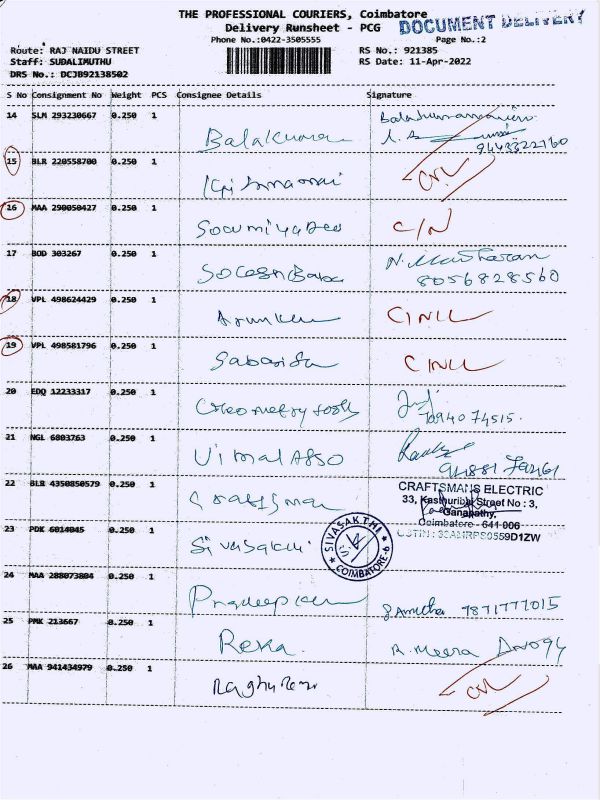 THE PROFESSIONAL COURIERS, Coimbatore
DOCUMENT DELIVERY
Delivery Runsheet - PCG
Phone No.:0422-3505555
Page No.:2
Route: RAJ NAIDU STREET
RS No.: 921385
Staff: SUDALIMUTHU
RS Date: 11-Apr-2022
DRS No.: DCJB92138502
S No Consignment No Weight PCS Consignee Details Signature
14 SLM 293230667 0.250 1 Balakumar
9443322160
15 BLR 220558700 0.250 1
16 MAA 290050427 0.250 1 C/N
17 BOD 303267 0.250 1
8056828560
18 VPL 498624429 0.250 1 Arunku
19 VPL 498581796 0.250 1
20 EDQ 12233317 0.250 1 Geometry tools
7094074515.
21 NGL 6803763 0.250 1 Vimal Asso
22 BLR 4350850579 0.250 1 Craftsman
CRAFTSMANS ELECTRIC
33, Kasthuribai Street No : 3,
Ganapathy,
Coimbatore - 641 006
23 PDK 6014045 0.250 1 Sivasakthi
SIVASAKTHI
COIMBATORE-6
24 MAA 288073804 0.250 1 Pradeepku
9871777015
25 PMK 213667 0.250 1 Reka R. Meera
26 MAA 941434979 0.250 1 Raghu